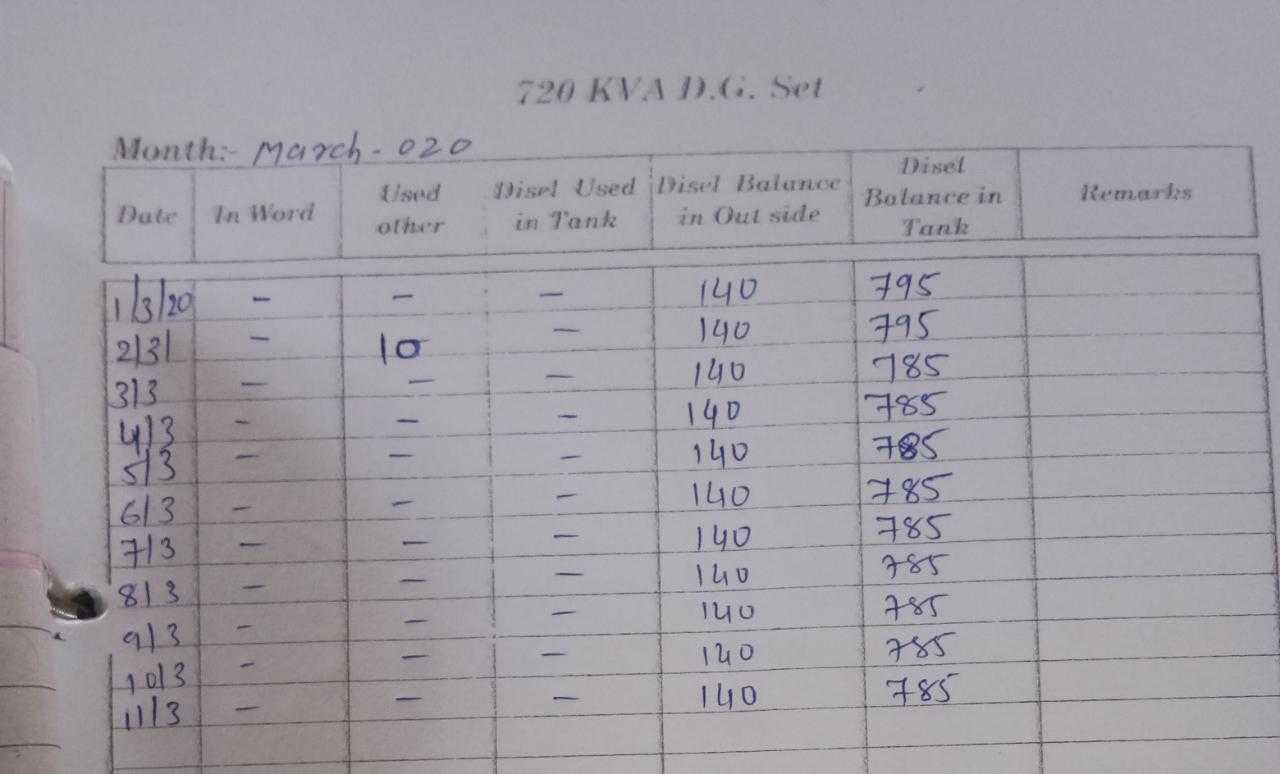 720 KVA D.G. Set
Month:- March - 020
Date In Word Used other Disel Used in Tank Disel Balance in Out side Disel Balance in Tank Remarks
1/3/20 - - - 140 795
2/3/ - 10 - 140 795
3/3 - - - 140 785
4/3 - - - 140 785
5/3 - - - 140 785
6/3 - - - 140 785
7/3 - - - 140 785
8/3 - - - 140 785
9/3 - - - 140 785
10/3 - - - 140 785
11/3 - - - 140 785